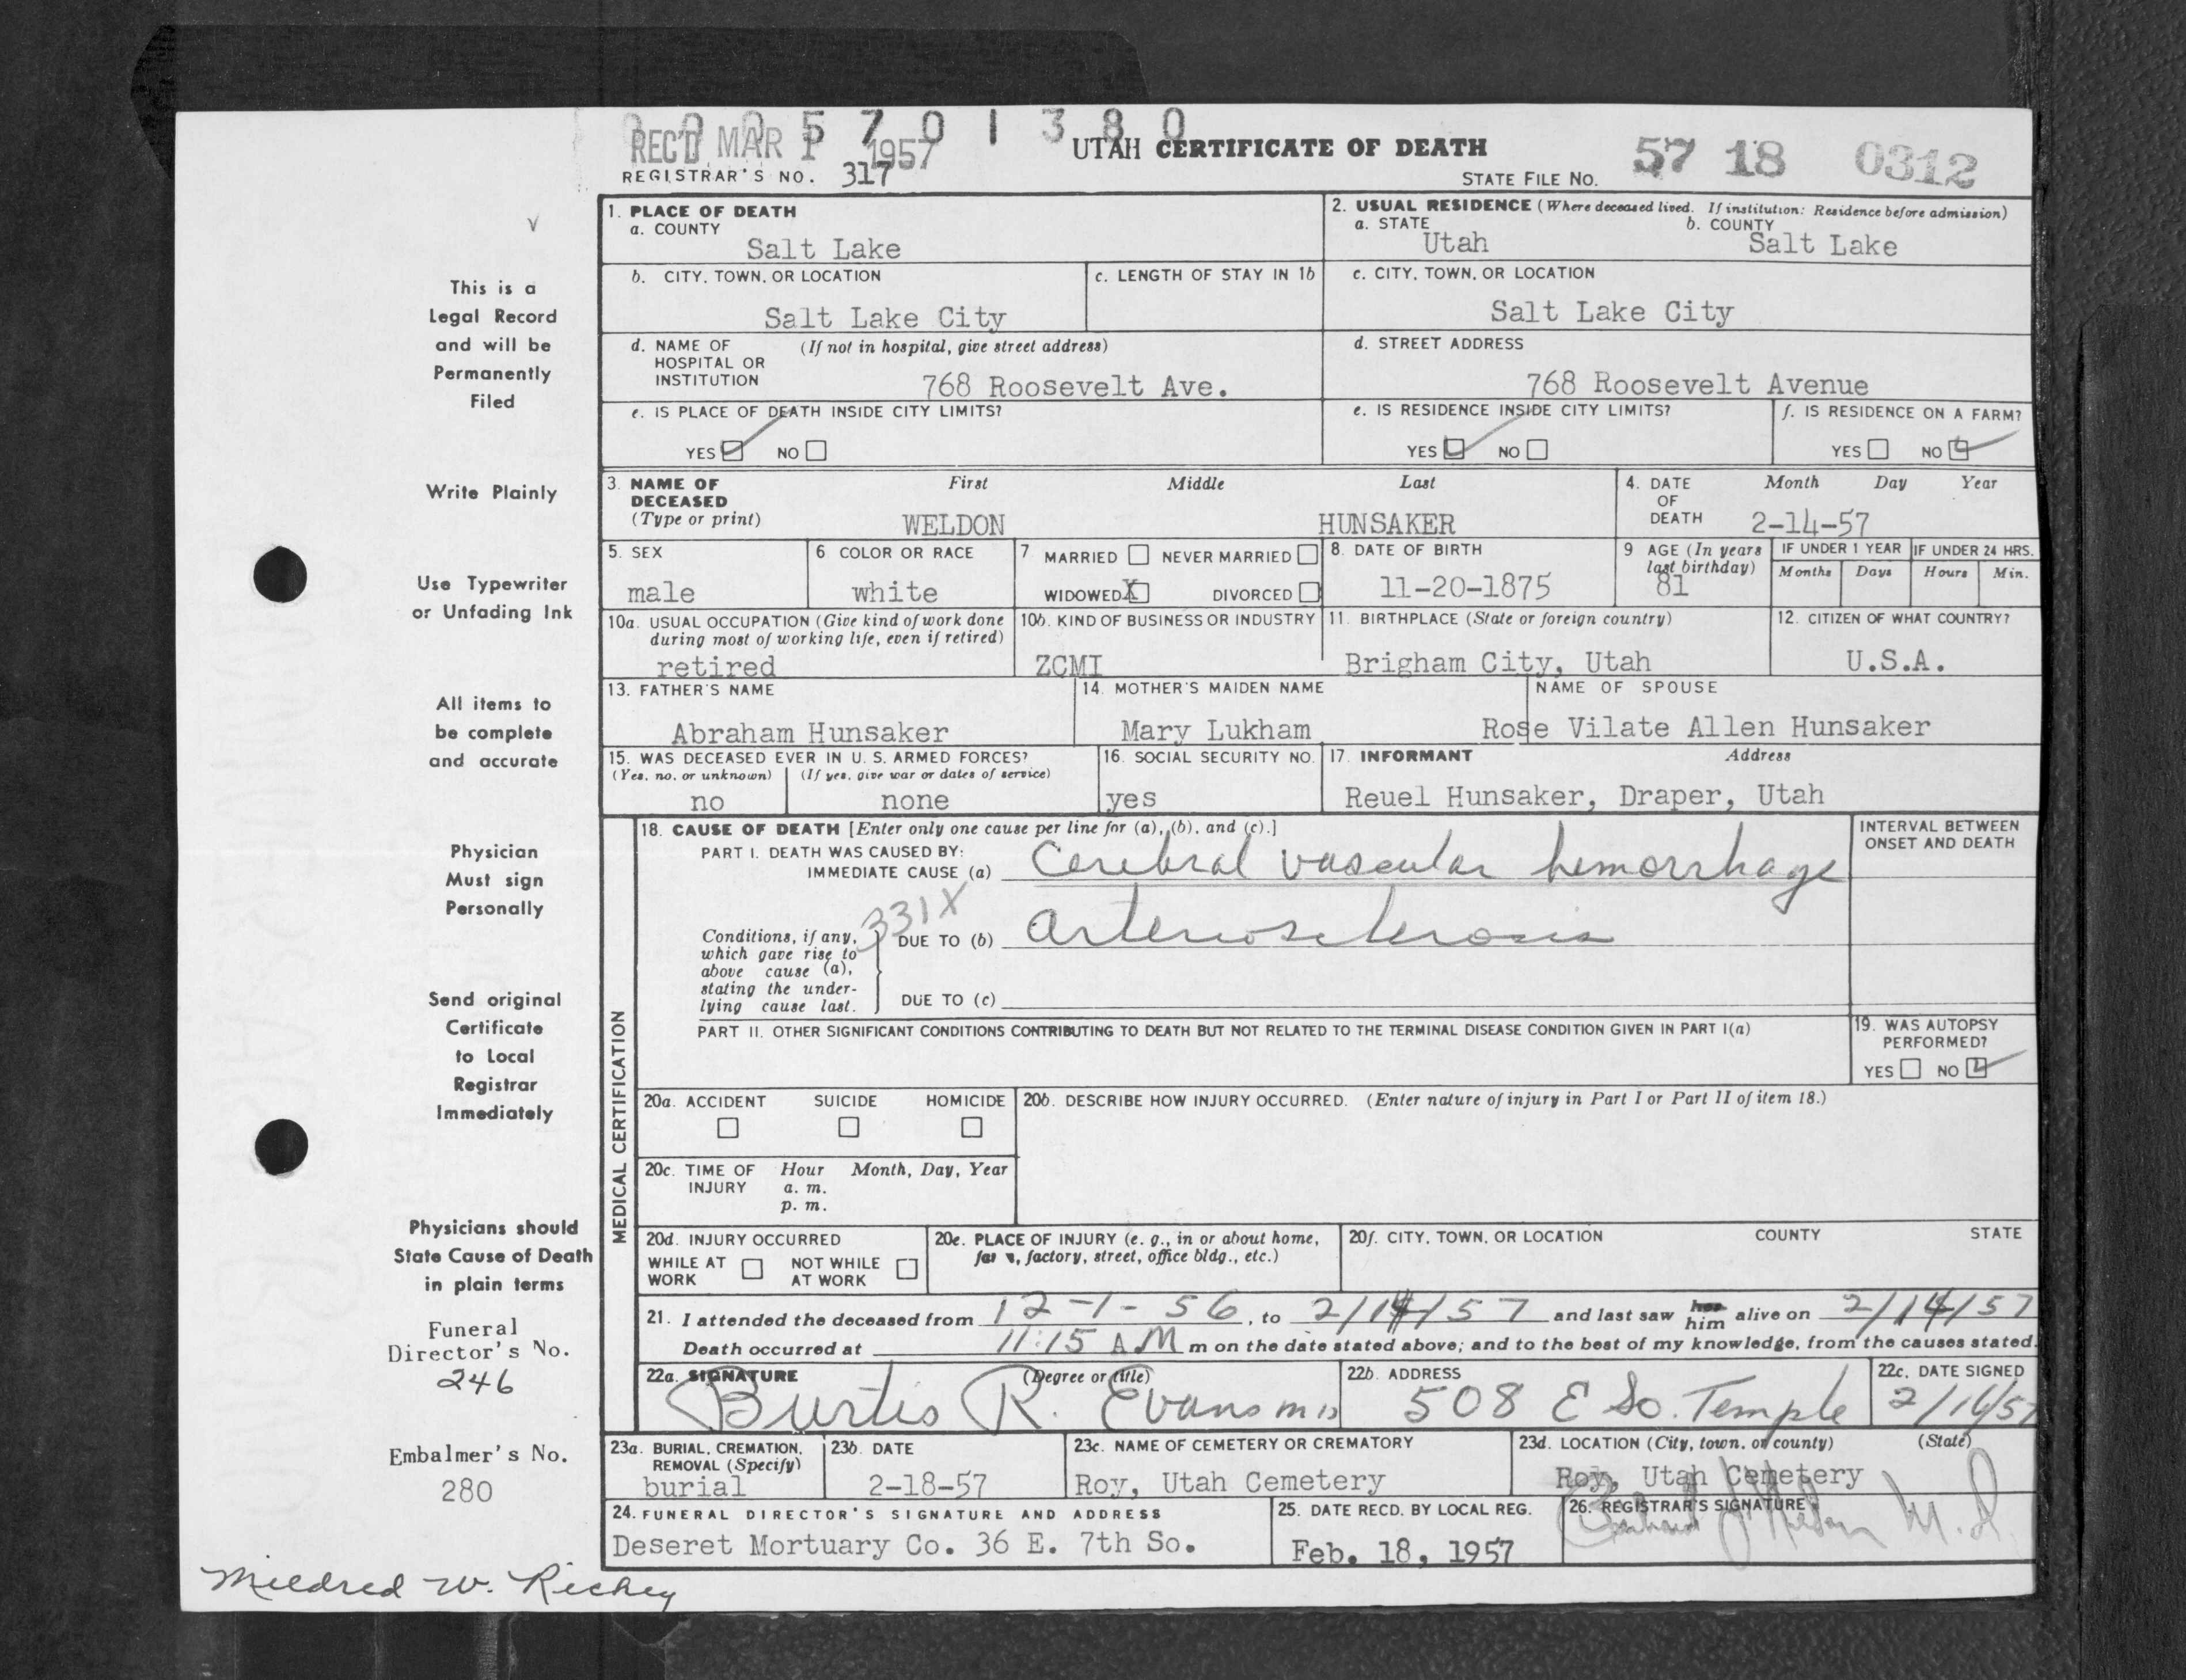 00 5 7 0 1 3 8 0
REC'D MAR 1 1957
UTAH CERTIFICATE OF DEATH
57 18 0312
REGISTRAR'S NO. 317
STATE FILE NO.
1. PLACE OF DEATH
a. COUNTY
Salt Lake
2. USUAL RESIDENCE (Where deceased lived. If institution: Residence before admission)
a. STATE b. COUNTY
Utah Salt Lake
b. CITY, TOWN, OR LOCATION
Salt Lake City
c. LENGTH OF STAY IN 1b
c. CITY, TOWN, OR LOCATION
Salt Lake City
d. NAME OF (If not in hospital, give street address)
HOSPITAL OR
INSTITUTION 768 Roosevelt Ave.
d. STREET ADDRESS
768 Roosevelt Avenue
e. IS PLACE OF DEATH INSIDE CITY LIMITS?
YES NO
e. IS RESIDENCE INSIDE CITY LIMITS?
YES NO
f. IS RESIDENCE ON A FARM?
YES NO
3. NAME OF DECEASED First Middle Last
(Type or print) WELDON HUNSAKER
4. DATE OF DEATH Month Day Year
2-14-57
5. SEX
male
6 COLOR OR RACE
white
7. MARRIED NEVER MARRIED
WIDOWED X DIVORCED
8. DATE OF BIRTH
11-20-1875
9 AGE (In years last birthday)
81
IF UNDER 1 YEAR IF UNDER 24 HRS.
Months Days Hours Min.
10a. USUAL OCCUPATION (Give kind of work done
during most of working life, even if retired)
retired
10b. KIND OF BUSINESS OR INDUSTRY
ZCMI
11. BIRTHPLACE (State or foreign country)
Brigham City, Utah
12. CITIZEN OF WHAT COUNTRY?
U.S.A.
13. FATHER'S NAME
Abraham Hunsaker
14. MOTHER'S MAIDEN NAME
Mary Lukham
NAME OF SPOUSE
Rose Vilate Allen Hunsaker
15. WAS DECEASED EVER IN U. S. ARMED FORCES?
(Yes, no, or unknown) (If yes, give war or dates of service)
no none
16. SOCIAL SECURITY NO.
yes
17. INFORMANT Address
Reuel Hunsaker, Draper, Utah
MEDICAL CERTIFICATION
18. CAUSE OF DEATH [Enter only one cause per line for (a), (b), and (c).]
INTERVAL BETWEEN
ONSET AND DEATH
PART I. DEATH WAS CAUSED BY:
IMMEDIATE CAUSE (a) Cerebral vascular hemorrhage
331X
Conditions, if any,
which gave rise to
above cause (a),
stating the under-
lying cause last.
DUE TO (b) arteriosclerosis
DUE TO (c)
PART II. OTHER SIGNIFICANT CONDITIONS CONTRIBUTING TO DEATH BUT NOT RELATED TO THE TERMINAL DISEASE CONDITION GIVEN IN PART I(a)
19. WAS AUTOPSY
PERFORMED?
YES NO
20a. ACCIDENT SUICIDE HOMICIDE
20b. DESCRIBE HOW INJURY OCCURRED. (Enter nature of injury in Part I or Part II of item 18.)
20c. TIME OF INJURY Hour Month, Day, Year
a. m.
p. m.
20d. INJURY OCCURRED
WHILE AT WORK NOT WHILE AT WORK
20e. PLACE OF INJURY (e. g., in or about home,
farm, factory, street, office bldg., etc.)
20f. CITY, TOWN, OR LOCATION COUNTY STATE
21. I attended the deceased from 12-1-56, to 2/14/57 and last saw her him alive on 2/14/57
Death occurred at 11:15 AM m on the date stated above; and to the best of my knowledge, from the causes stated.
22a. SIGNATURE (Degree or title)
Burtis R. Evans MD
22b. ADDRESS
508 E So. Temple
22c. DATE SIGNED
2/16/57
23a. BURIAL, CREMATION,
REMOVAL (Specify)
burial
23b. DATE
2-18-57
23c. NAME OF CEMETERY OR CREMATORY
Roy, Utah Cemetery
23d. LOCATION (City, town, or county) (State)
Roy, Utah Cemetery
24. FUNERAL DIRECTOR'S SIGNATURE AND ADDRESS
Deseret Mortuary Co. 36 E. 7th So.
25. DATE RECD. BY LOCAL REG.
Feb. 18, 1957
26. REGISTRAR'S SIGNATURE
M.D.
This is a
Legal Record
and will be
Permanently
Filed
Write Plainly
Use Typewriter
or Unfading Ink
All items to
be complete
and accurate
Physician
Must sign
Personally
Send original
Certificate
to Local
Registrar
Immediately
Physicians should
State Cause of Death
in plain terms
Funeral
Director's No.
246
Embalmer's No.
280
Mildred W. Richey